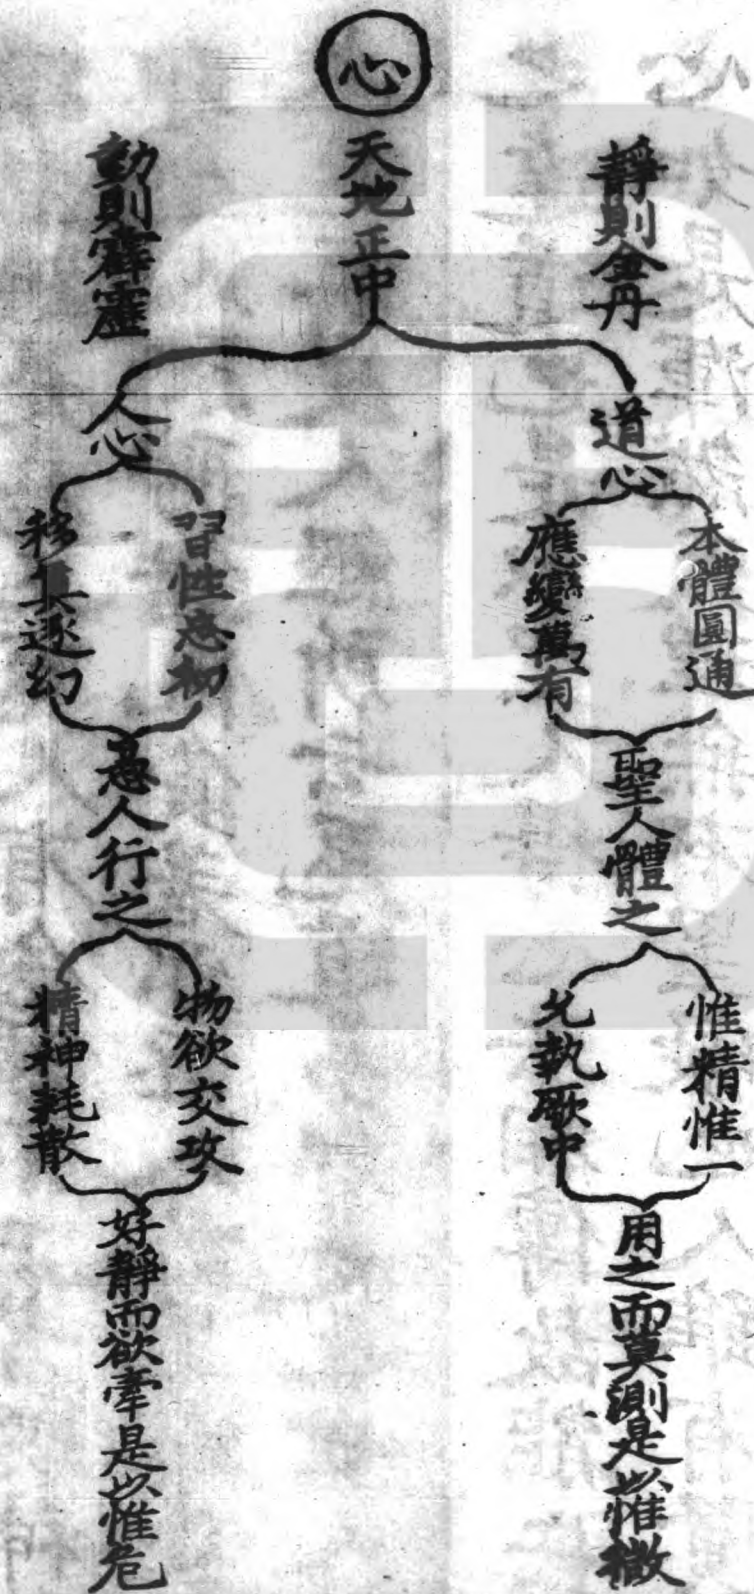 心
天地正中
靜則金丹
動則霹靂
道心
本體圓通
應變萬有
聖人體之
惟精惟一
允執厥中
用之而莫測是以惟微
人心
習性忘初
移真逐幻
愚人行之
物欲交攻
精神耗散
好靜而欲牽是以惟危